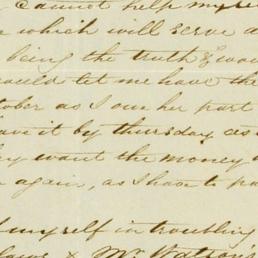 cannot help myse
which will serve a
being the truth & wou
could let me have the
tober as I owe her part
ave it by thursday as
they want the money
again, as I have to pa
f myself in troubling
laws & Mr. Watson's